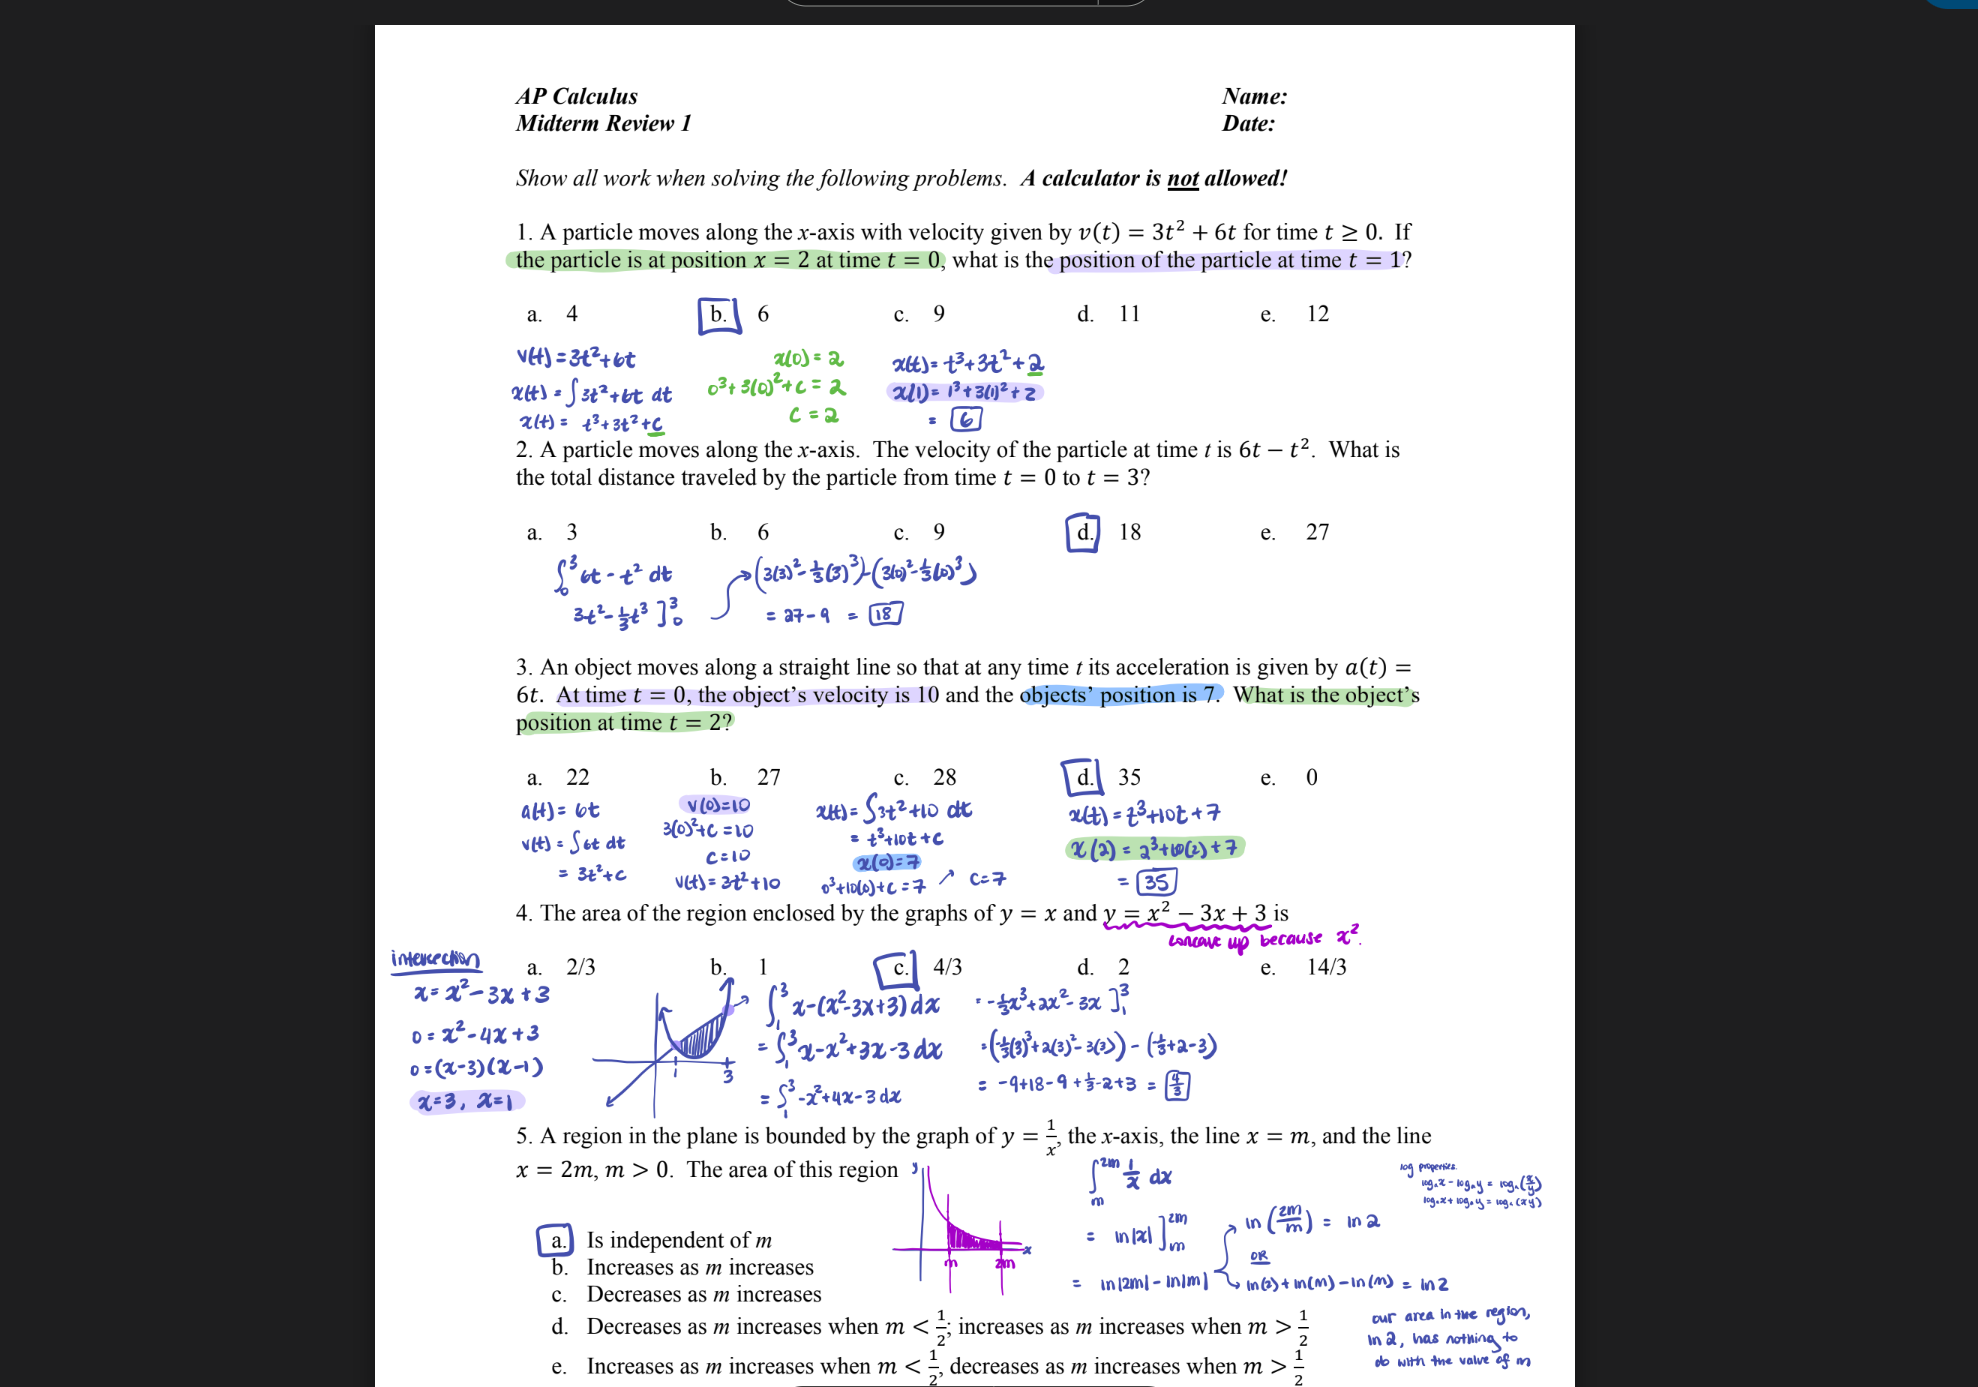 AP Calculus
Name:
Midterm Review 1
Date:
Show all work when solving the following problems. A calculator is not allowed!
1. A particle moves along the x-axis with velocity given by v(t) = 3t² + 6t for time t ≥ 0. If
the particle is at position x = 2 at time t = 0, what is the position of the particle at time t = 1?
a. 4 b. 6 c. 9 d. 11 e. 12
v(t) = 3t²+6t
x(t) = ∫ 3t²+6t dt
x(t) = t³+3t²+C
x(0) = 2
0³+3(0)²+C = 2
C = 2
x(t) = t³+3t²+2
x(1) = 1³+3(1)²+2
= 6
2. A particle moves along the x-axis. The velocity of the particle at time t is 6t − t². What is
the total distance traveled by the particle from time t = 0 to t = 3?
a. 3 b. 6 c. 9 d. 18 e. 27
∫₀³ 6t - t² dt
3t² - ⅓t³ ]₀³
(3(3)² - ⅓(3)³) - (3(0)² - ⅓(0)³)
= 27-9 = 18
3. An object moves along a straight line so that at any time t its acceleration is given by a(t) =
6t. At time t = 0, the object's velocity is 10 and the objects' position is 7. What is the object's
position at time t = 2?
a. 22 b. 27 c. 28 d. 35 e. 0
a(t) = 6t
v(t) = ∫ 6t dt
= 3t²+C
v(0)=10
3(0)²+C = 10
C=10
v(t) = 3t²+10
x(t) = ∫ 3t²+10 dt
= t³+10t+C
x(0)=7
0³+10(0)+C = 7 ↗ C=7
x(t) = t³+10t+7
x(2) = 2³+10(2)+7
= 35
4. The area of the region enclosed by the graphs of y = x and y = x² − 3x + 3 is
concave up because x².
a. 2/3 b. 1 c. 4/3 d. 2 e. 14/3
intersection
x = x² - 3x + 3
0 = x² - 4x + 3
0 = (x-3)(x-1)
x=3, x=1
1 3
∫₁³ x-(x²-3x+3) dx
= ∫₁³ x-x²+3x-3 dx
= ∫₁³ -x²+4x-3 dx
= -⅓x³+2x²-3x ]₁³
= (-⅓(3)³+2(3)²-3(3)) - (-⅓+2-3)
= -9+18-9+⅓-2+3 = 4/3
5. A region in the plane is bounded by the graph of y = 1/x, the x-axis, the line x = m, and the line
x = 2m, m > 0. The area of this region
y
x
m 2m
∫ₘ²ᵐ 1/x dx
= ln|x| ]ₘ²ᵐ
= ln|2m| - ln|m|
ln (2m/m) = ln 2
OR
ln(2) + ln(m) - ln(m) = ln 2
log properties.
logₐx - logₐy = logₐ(x/y)
logₐx + logₐy = logₐ(xy)
a. Is independent of m
b. Increases as m increases
c. Decreases as m increases
d. Decreases as m increases when m < 1/2; increases as m increases when m > 1/2
e. Increases as m increases when m < 1/2, decreases as m increases when m > 1/2
our area in the region,
ln 2, has nothing to
do with the value of m